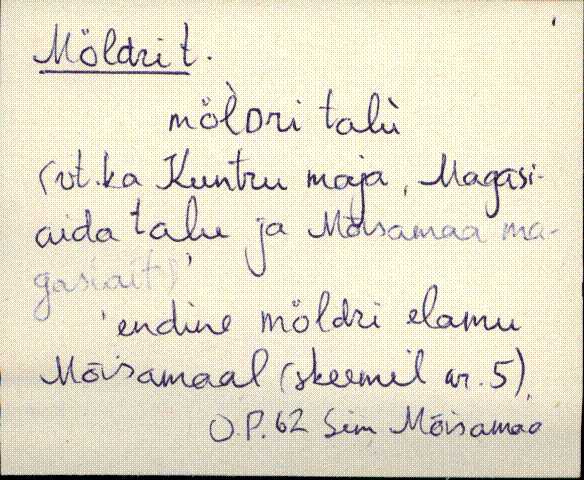 Möldri t.
möl̀dri talù
(vt. ka Kuntru maja, Magasi-
aida talu ja Mõisamaa ma-
gasiait)
'endine möldri elamu
Mõisamaal (skeemil nr. 5).
O.P. 62 Sim Mõisamaa